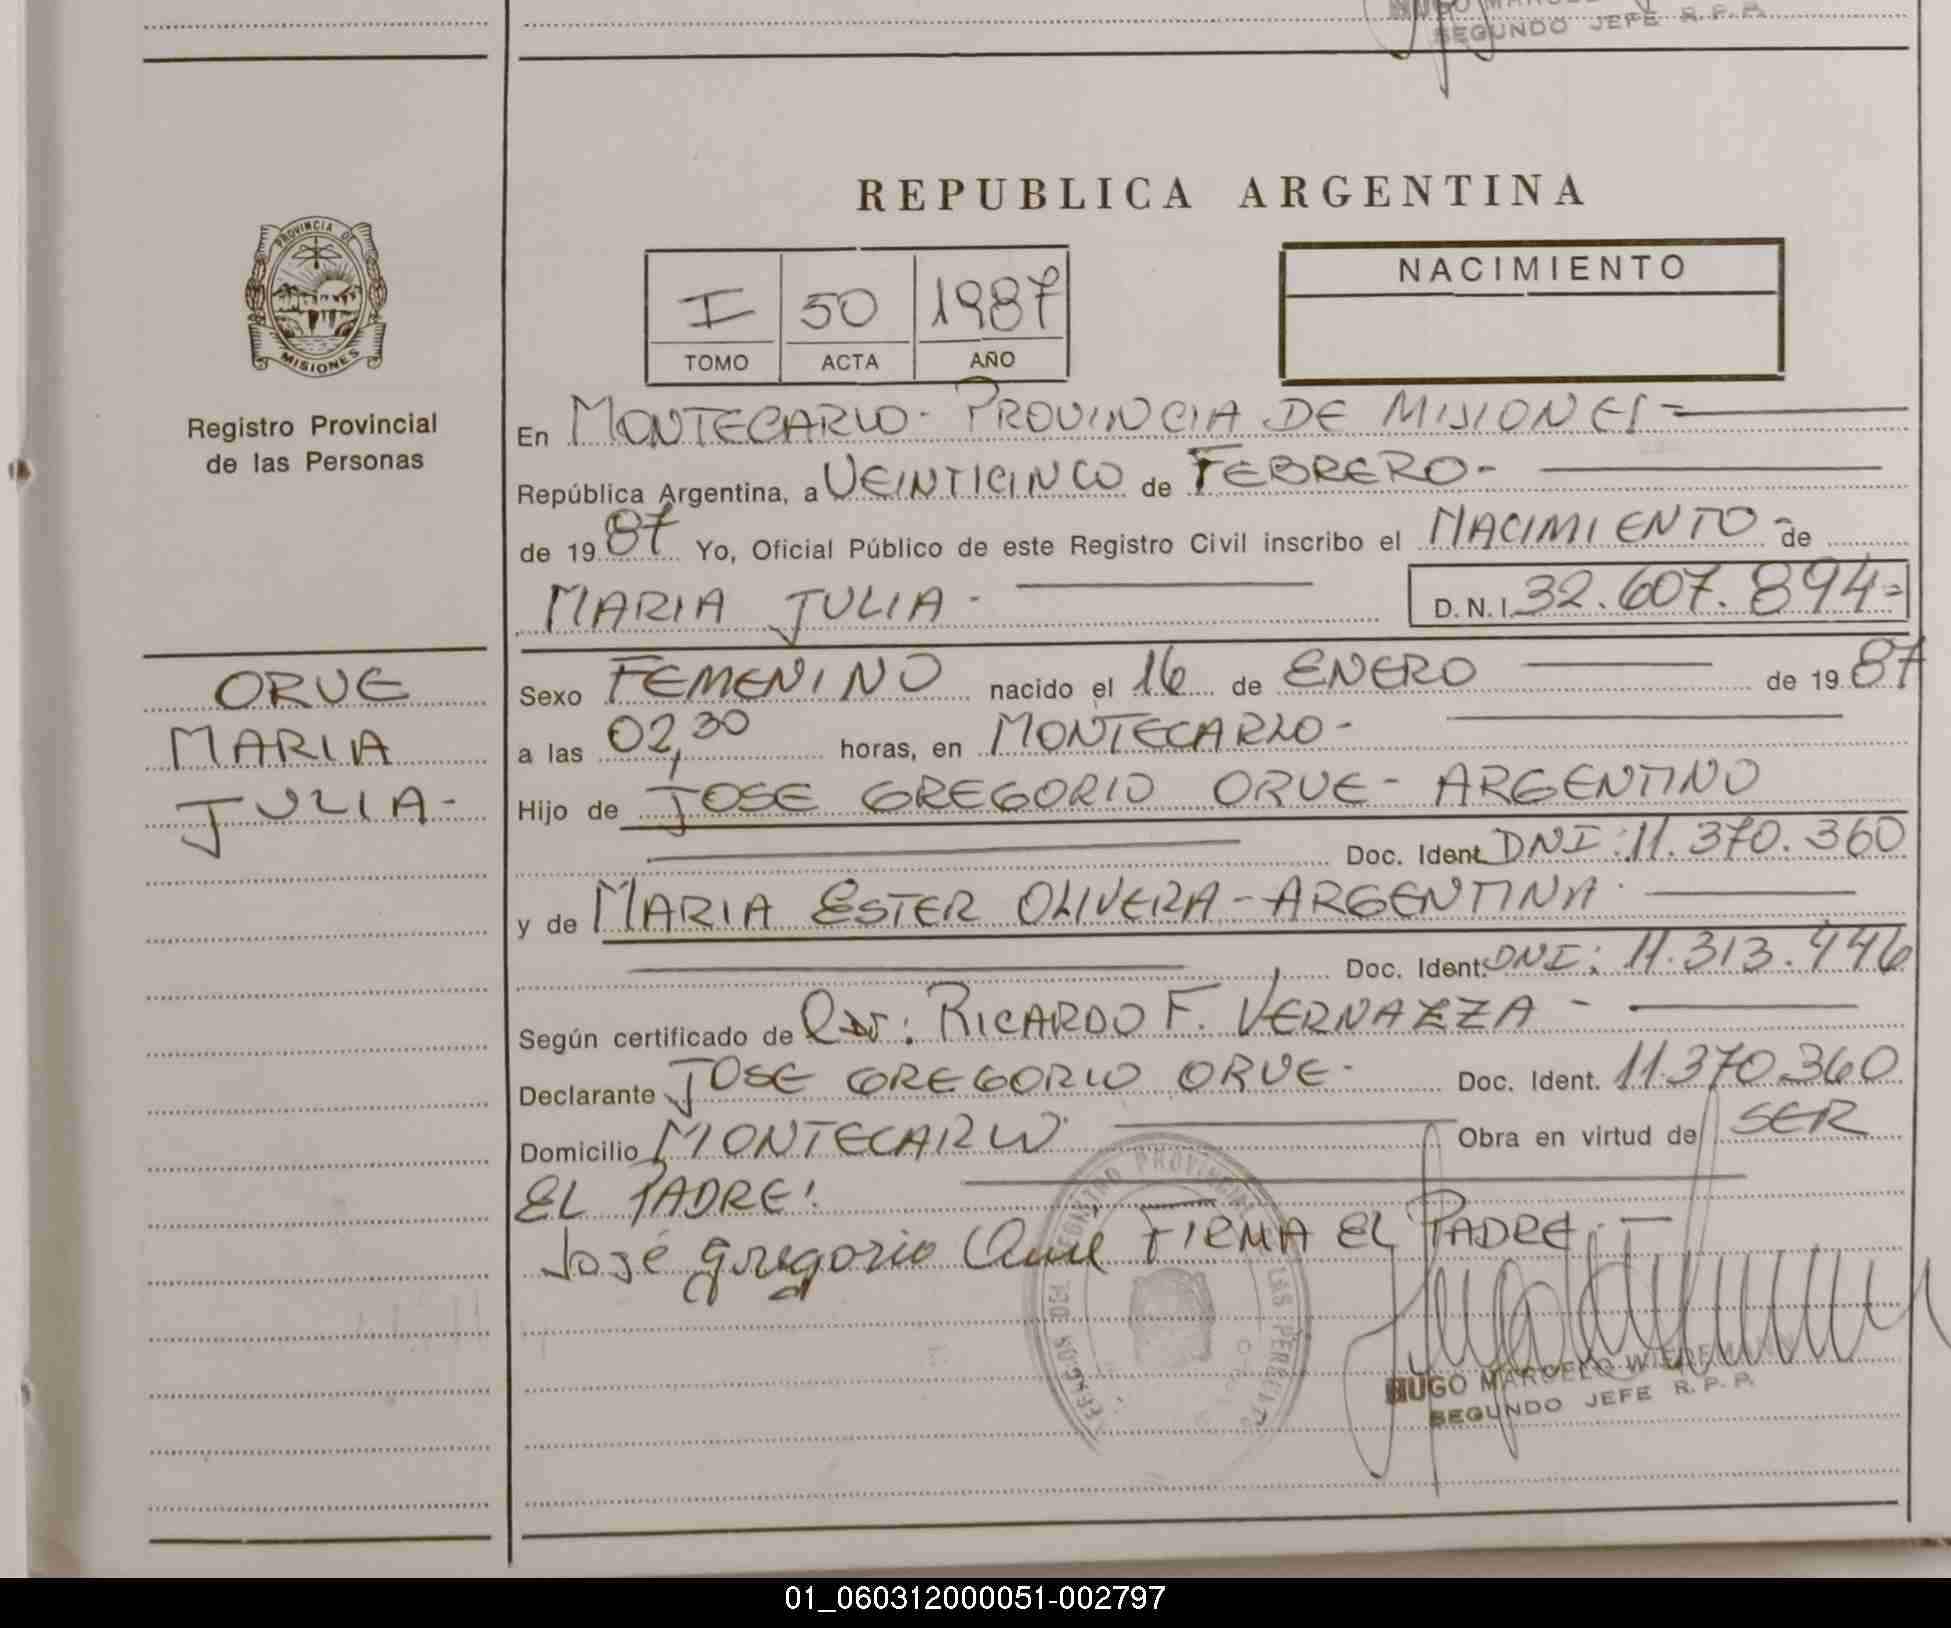 SEGUNDO JEFE R.P.P.
REPUBLICA ARGENTINA
PROVINCIA DE
MISIONES
Registro Provincial
de las Personas
I 50 1987
TOMO ACTA AÑO
NACIMIENTO
En MONTECARLO - PROVINCIA DE MISIONES -
República Argentina, a VEINTICINCO de FEBRERO -
de 1987 Yo, Oficial Público de este Registro Civil inscribo el NACIMIENTO - de
MARIA JULIA - D.N.I. 32.607.894=
ORUE
MARIA
JULIA -
Sexo FEMENINO nacido el 16 de ENERO de 1987
a las 02,30 horas, en MONTECARLO -
Hijo de JOSE GREGORIO ORUE - ARGENTINO
Doc. Ident. DNI: 11.370.360
y de MARIA ESTER OLIVERA - ARGENTINA -
Doc. Ident. DNI: 11.313.446
Según certificado de RICARDO F. VERNAZZA -
Declarante JOSE GREGORIO ORUE - Doc. Ident. 11.370.360
Domicilio MONTECARLO - Obra en virtud de SER
EL PADRE!
José gregorio Orue FIRMA EL PADRE. -
HUGO MARCELO
SEGUNDO JEFE R.P.P.
01_060312000051-002797